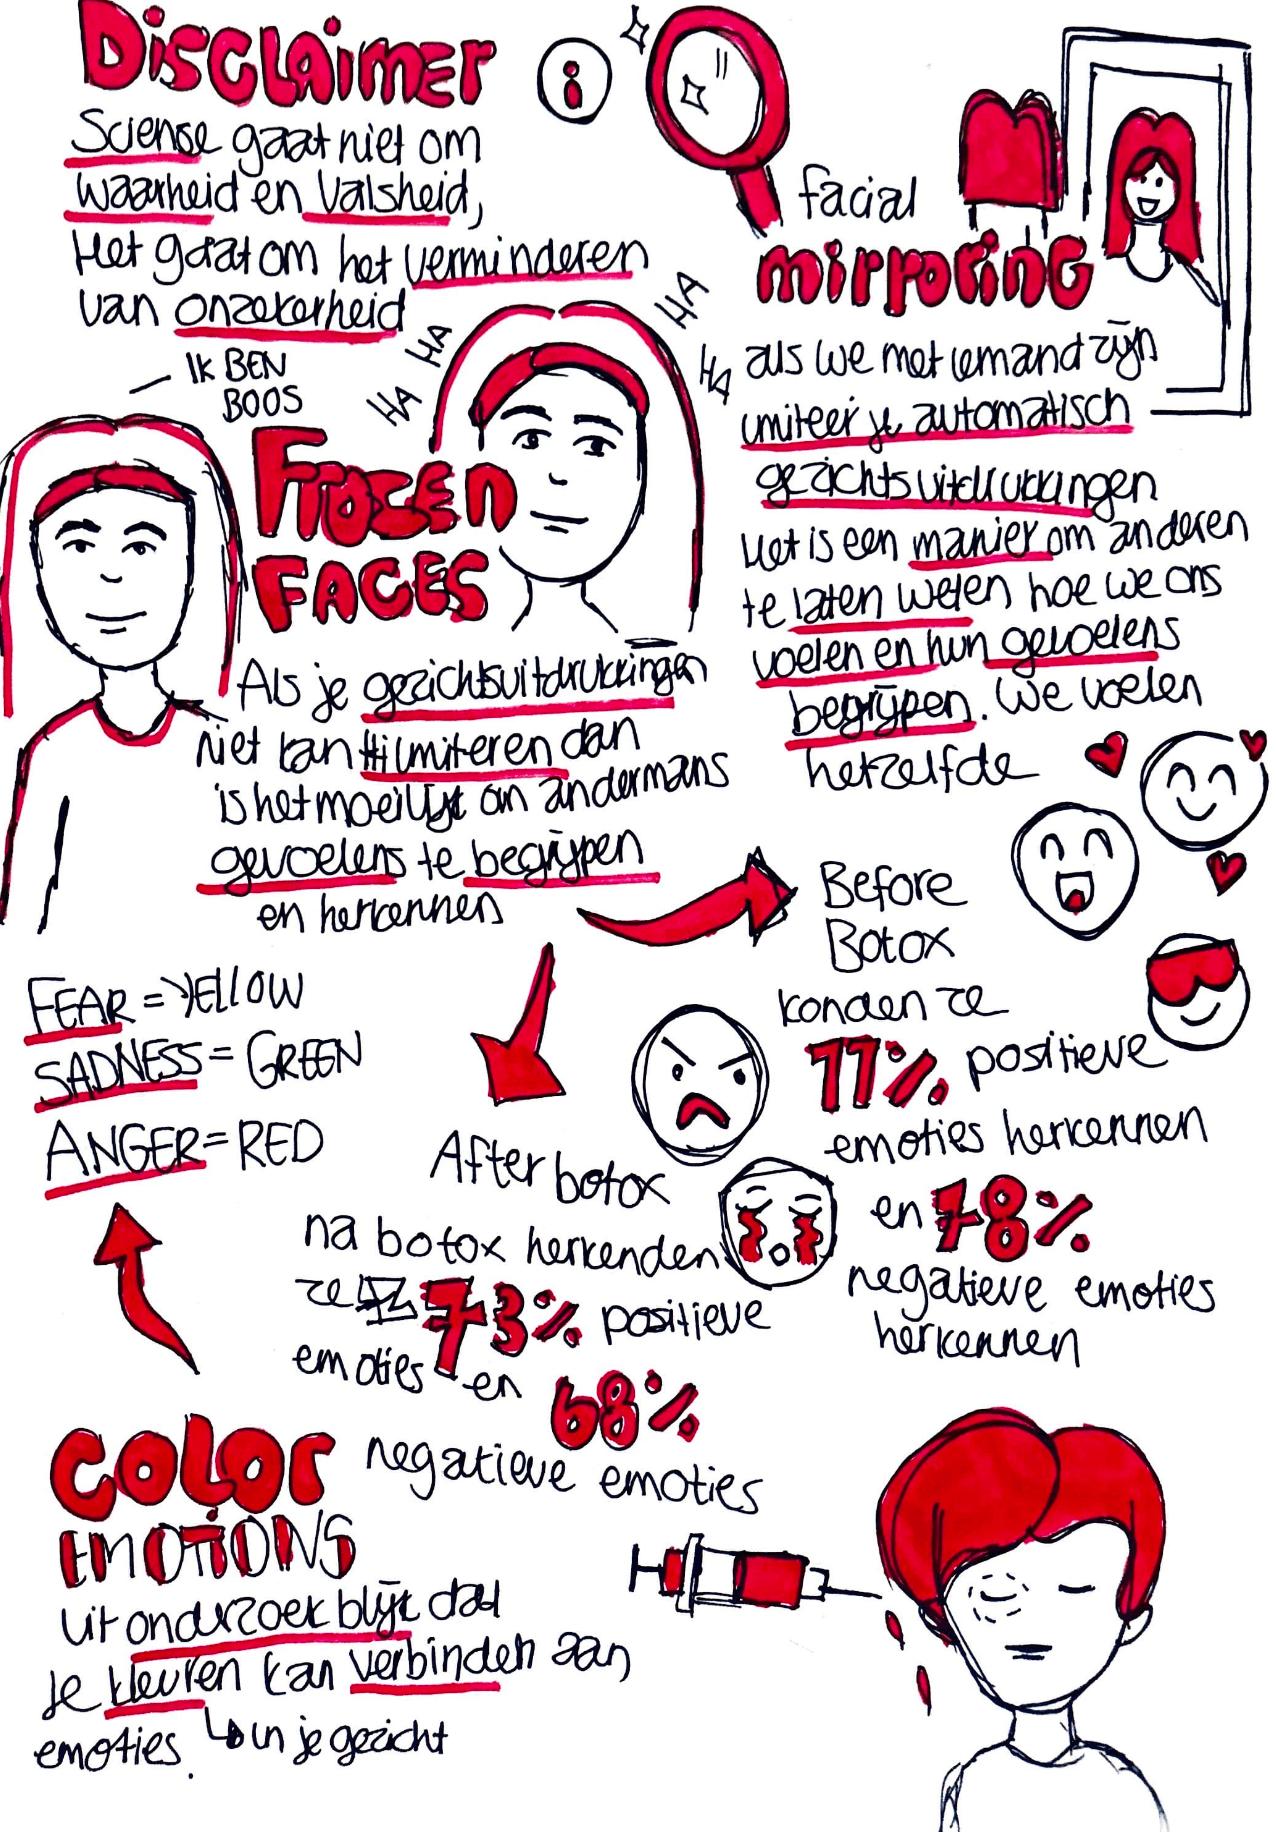 DiSCLAimER
i
Sciense gaat niet om
waarheid en valsheid,
Het gaat om het verminderen
van onzekerheid
facial
mirroring
als we met iemand zijn
imiteer je automatisch
gezichtsuitdrukkingen
Het is een manier om anderen
te laten weten hoe we ons
voelen en hun gevoelens
begrijpen. We voelen
hetzelfde
IK BEN
BOOS
HA HA
HA
HA
FROZEN
FACES
Als je gezichtsuitdrukkingen
niet kan imiteren dan
is het moeilijk om andermans
gevoelens te begrijpen
en herkennen
Before
Botox
konden ze
77% positieve
emoties herkennen
en 78%
negatieve emoties
herkennen
After botox
na botox herkenden
ze 73% positieve
emoties en 68%
negatieve emoties
FEAR = YELLOW
SADNESS = GREEN
ANGER = RED
COLOR
EMOTIONS
uit onderzoek blijkt dat
je kleuren kan verbinden aan
emoties. ↳ in je gezicht